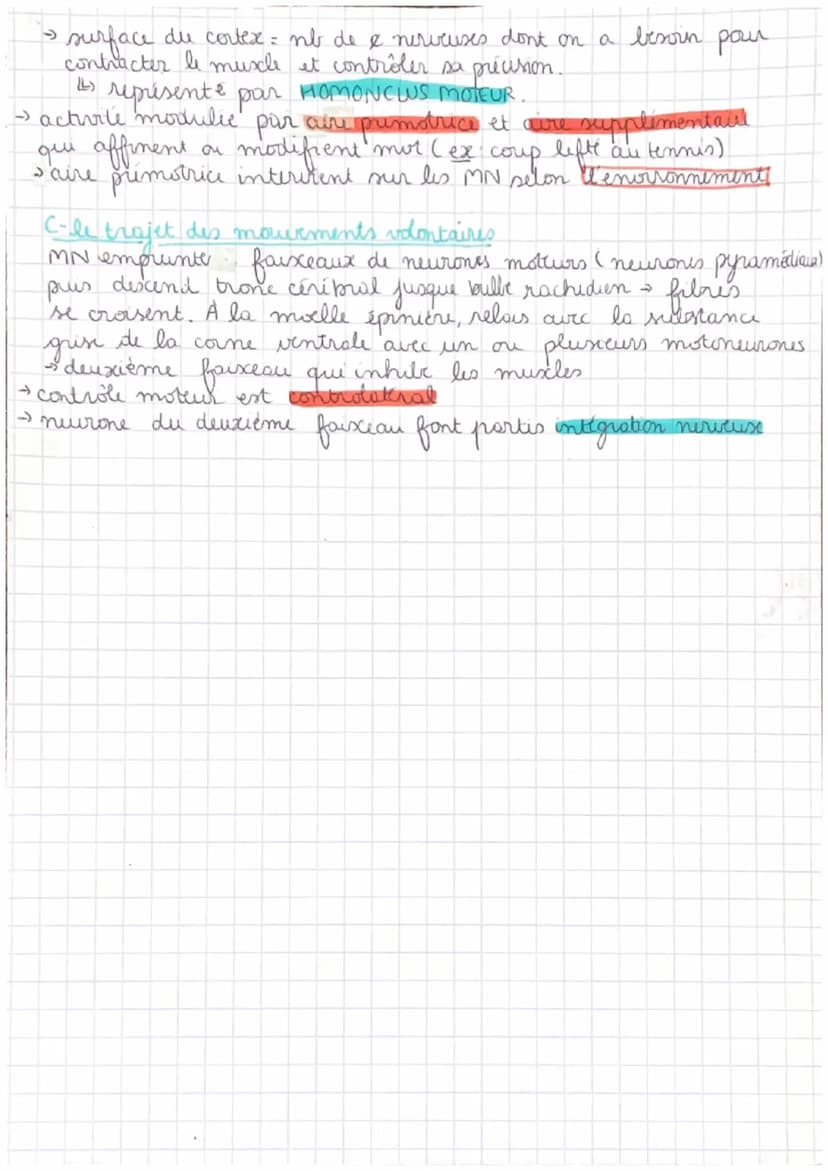 → surface du cortex = nb de ȼ nerveuses dont on a besoin pour
contracter le muscle et contrôler sa précision.
↳ représenté par HOMONCLUS MOTEUR.
→ activité modulée par aire prémotrice et aire supplémentaire
qui affinent ou modifient mvt (ex : coup lifté au tennis)
→ aire prémotrice intervient sur les MN selon l'environnement
C- le trajet des mouvements volontaires
MN emprunte faisceaux de neurones moteurs (neurones pyramidaux)
puis descend tronc cérébral jusque bulbe rachidien → fibres
se croisent. À la moelle épinière, relais avec la substance
grise de la corne ventrale avec un ou plusieurs motoneurones
→ deuxième faisceau qui inhibe les muscles
→ contrôle moteur est controlatéral
→ neurone du deuxième faisceau font partis intégration nerveuse